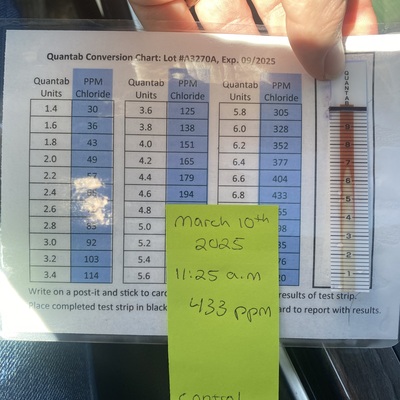 Quantab Conversion Chart: Lot #A3270A, Exp. 09/2025
Quantab Units PPM Chloride Quantab Units PPM Chloride Quantab Units PPM Chloride
1.4 30 3.6 125 5.8 305
1.6 36 3.8 138 6.0 328
1.8 43 4.0 151 6.2 352
2.0 49 4.2 165 6.4 377
2.2 4.4 179 6.6 404
2.4 4.6 194 6.8 433
2.6 4.8
2.8 5.0
3.0 92 5.2
3.2 103 5.4
3.4 114 5.6
QUANTAB
9
8
7
6
5
4
3
2
1
March 10th
2025
11:25 a.m
433 ppm
Control
Write on a post-it and stick to results of test strip.
Place completed test strip in black to report with results.